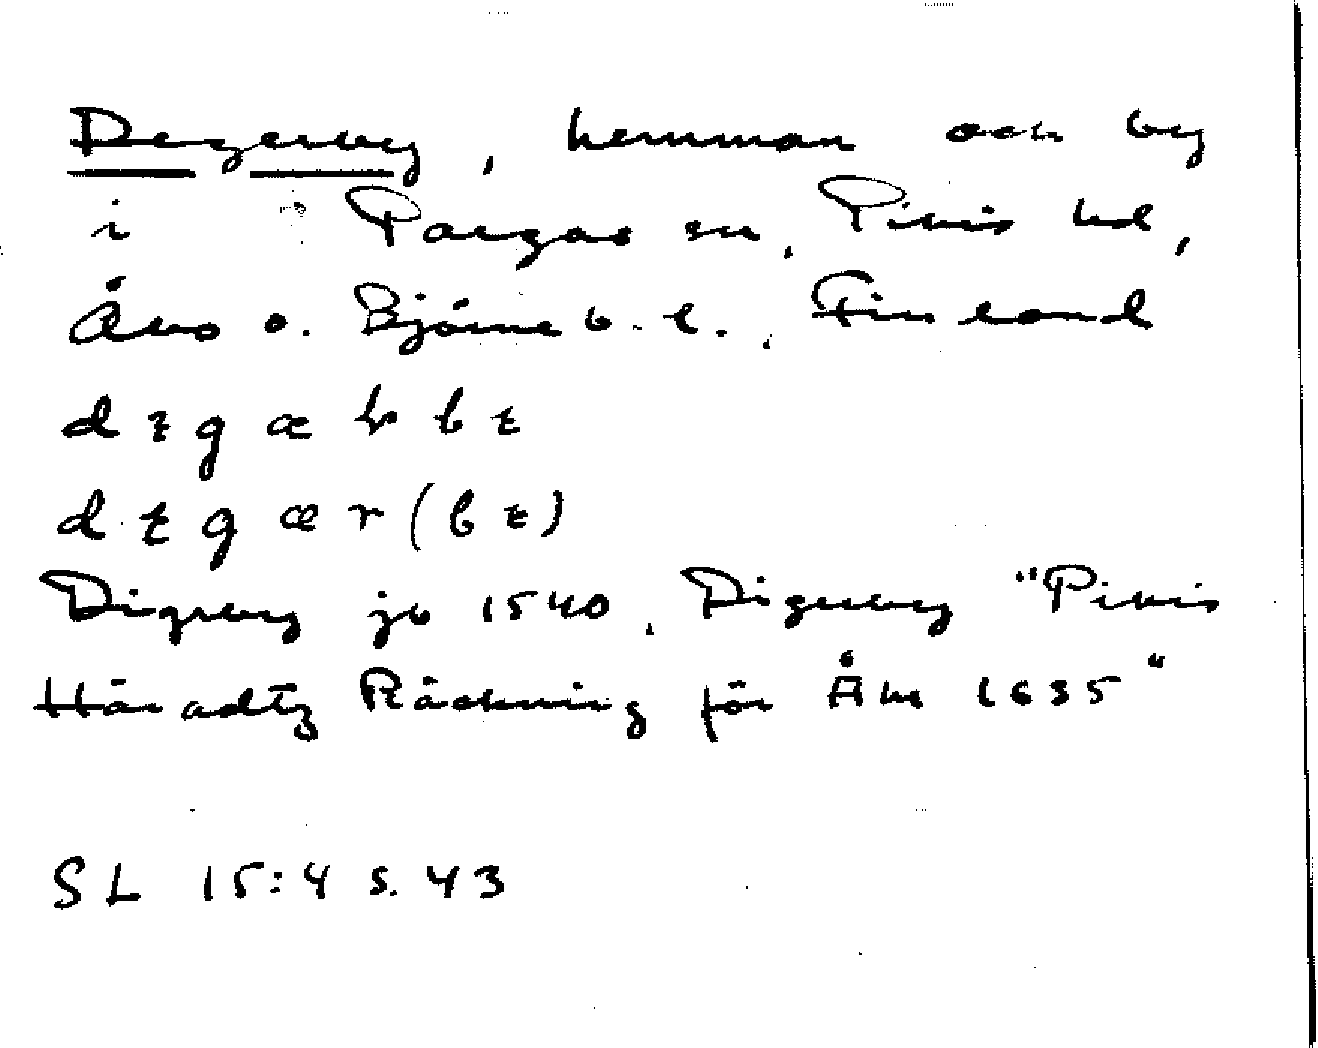 Degerby, hemman och by
i Pargas sn, Pikis hd,
Åbo o. Björneb. l., Finland
Digreby jb 1540, Digerby "Pikis
Häradtz Räckning för Åhr 1635"
SL 15:4 s. 43